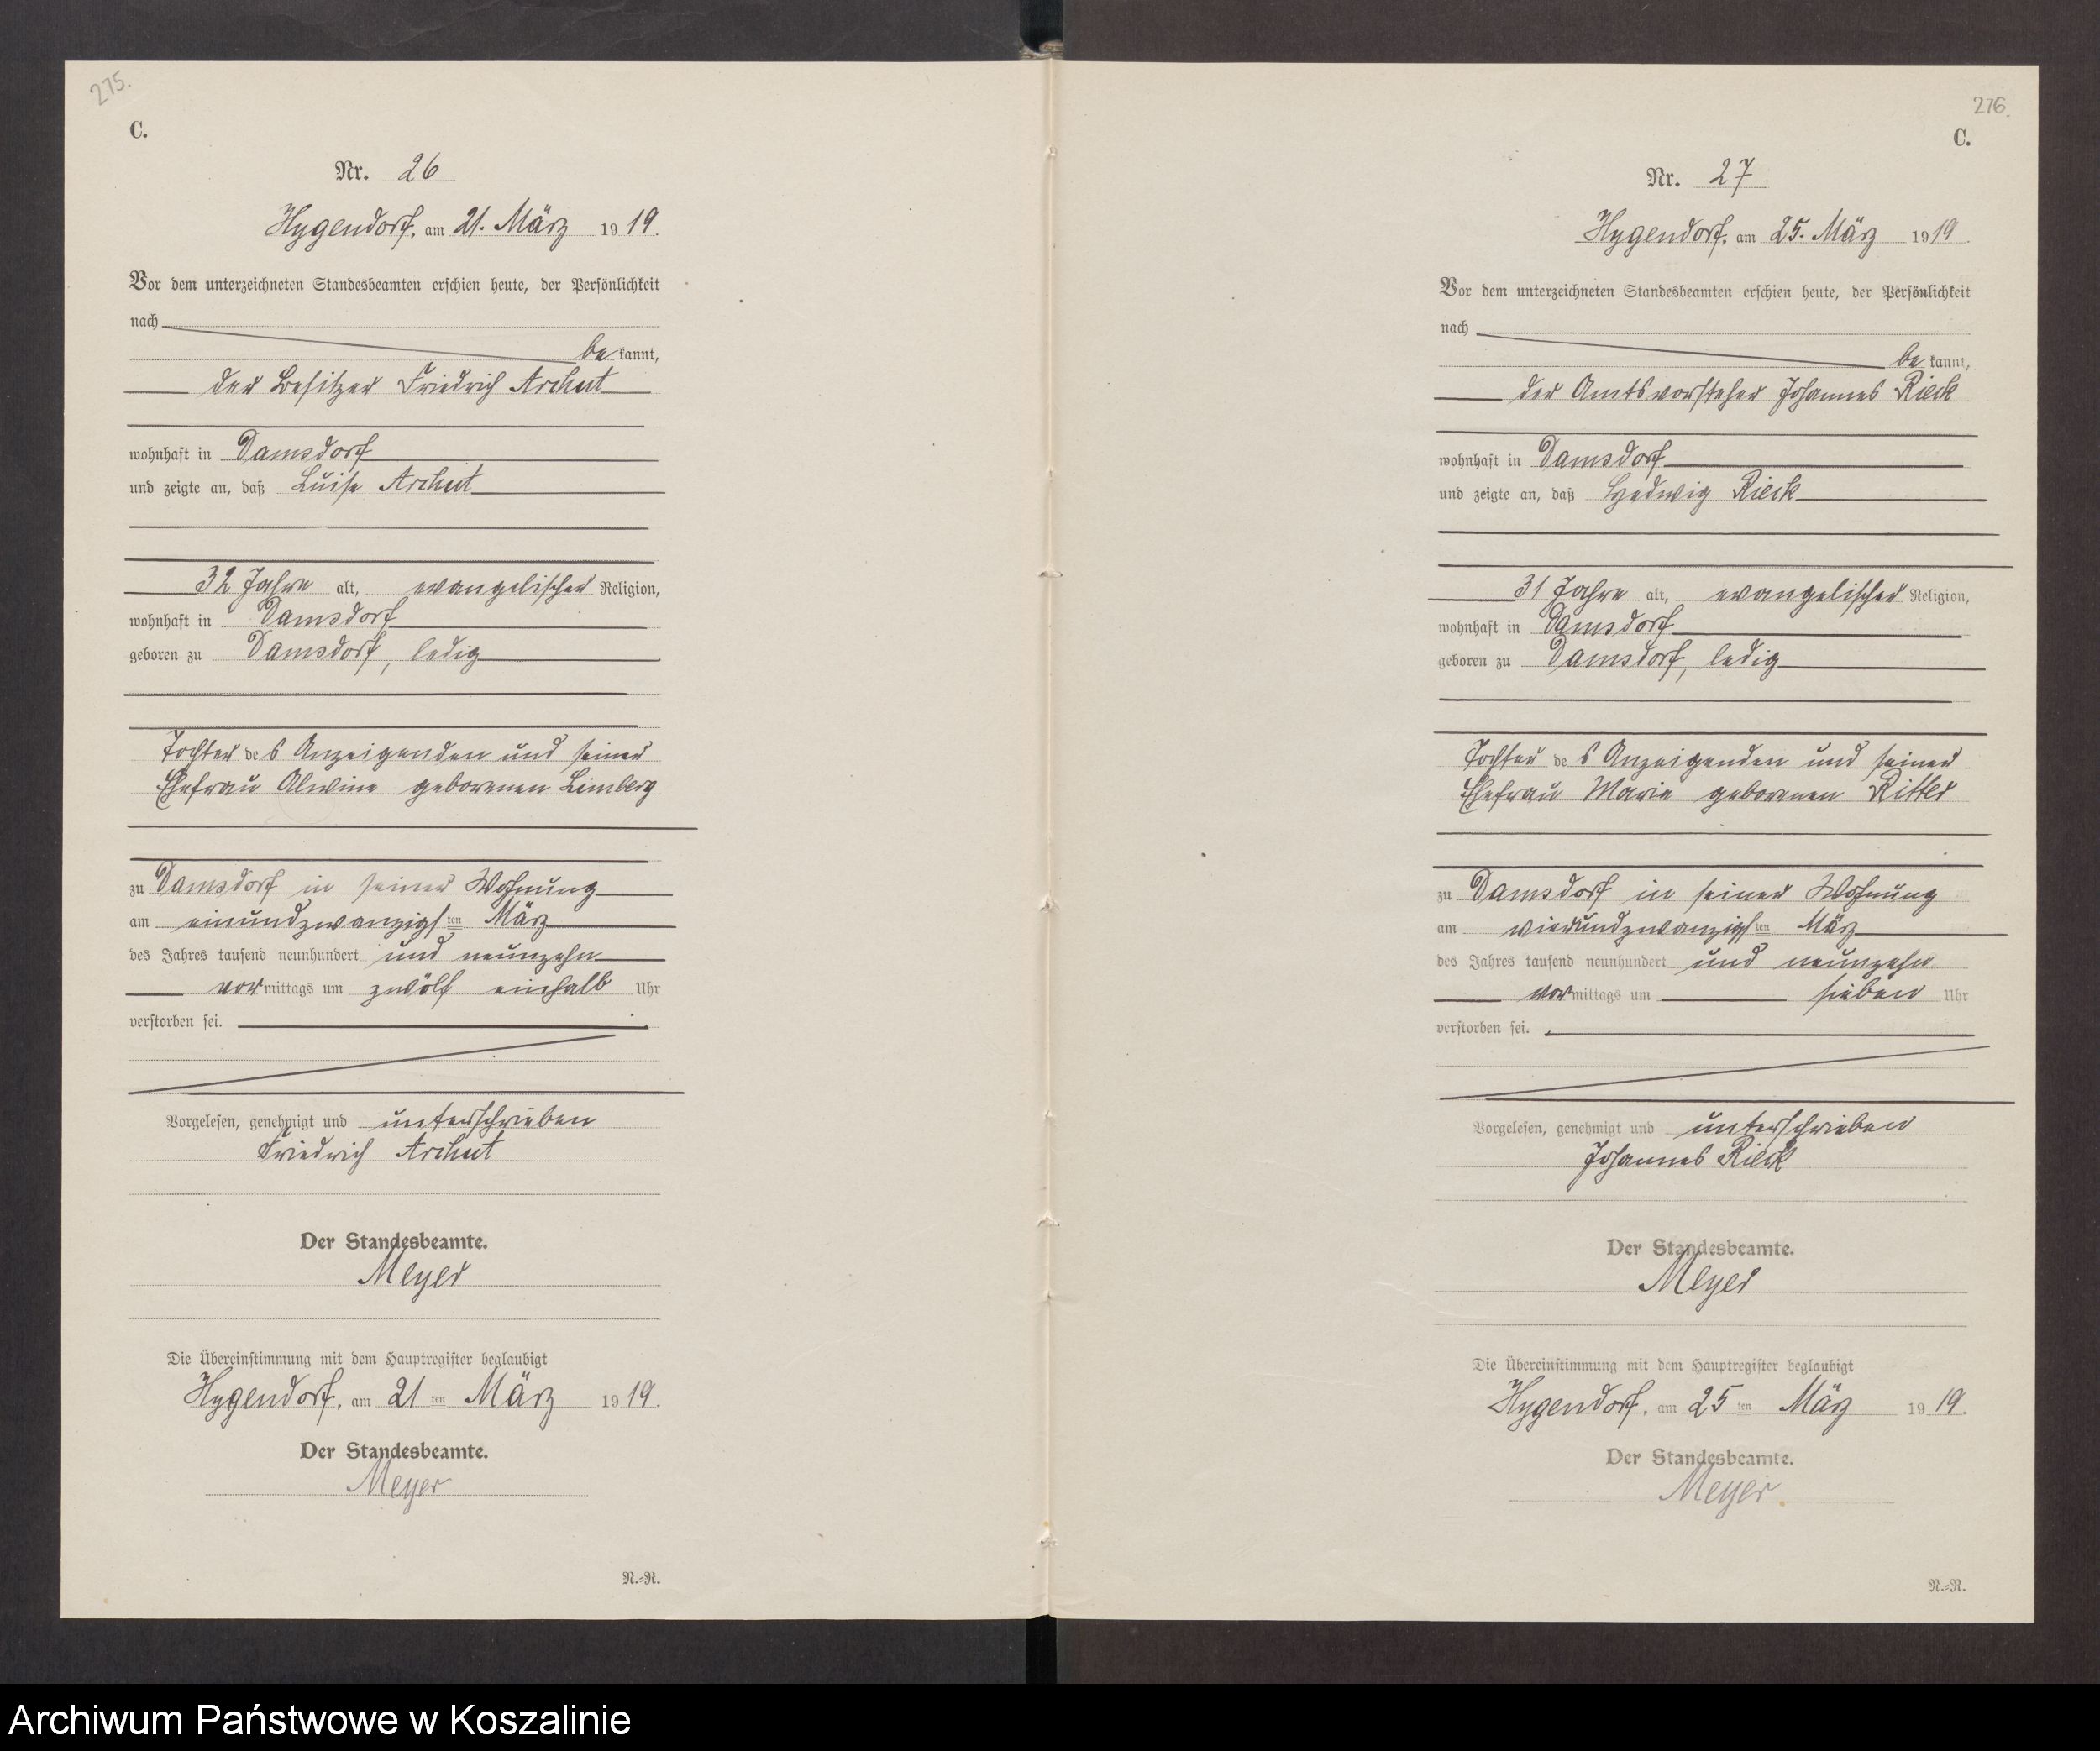 275.
C.
Nr. 26
Hygendorf, am 21. März 1919.
Vor dem unterzeichneten Standesbeamten erschien heute, der Persönlichkeit
nach
bekannt,
der Besitzer Friedrich Archut
wohnhaft in Damsdorf
und zeigte an, daß Luise Archut
32 Jahre alt, evangelischer Religion,
wohnhaft in Damsdorf
geboren zu Damsdorf, ledig
Tochter des Anzeigenden und seiner
Ehefrau Alwine geborenen Limberg
zu Damsdorf in seiner Wohnung
am einundzwanzigsten März
des Jahres tausend neunhundert und neunzehn
vormittags um zwölf einhalb Uhr
verstorben sei.
Vorgelesen, genehmigt und unterschrieben
Friedrich Archut
Der Standesbeamte.
Meyer
Die Übereinstimmung mit dem Hauptregister beglaubigt
Hygendorf, am 21ten März 1919.
Der Standesbeamte.
Meyer
N.=R.
276.
C.
Nr. 27
Hygendorf, am 25. März 1919.
Vor dem unterzeichneten Standesbeamten erschien heute, der Persönlichkeit
nach
bekannt,
der Amtsvorsteher Johannes Rieck
wohnhaft in Damsdorf
und zeigte an, daß Hedwig Rieck
31 Jahre alt, evangelischer Religion,
wohnhaft in Damsdorf
geboren zu Damsdorf, ledig
Tochter des Anzeigenden und seiner
Ehefrau Marie geborenen Ritter
zu Damsdorf in seiner Wohnung
am vierundzwanzigsten März
des Jahres tausend neunhundert und neunzehn
vormittags um sieben Uhr
verstorben sei.
Vorgelesen, genehmigt und unterschrieben
Johannes Rieck
Der Standesbeamte.
Meyer
Die Übereinstimmung mit dem Hauptregister beglaubigt
Hygendorf, am 25ten März 1919.
Der Standesbeamte.
Meyer
N.=R.
Archiwum Państwowe w Koszalinie